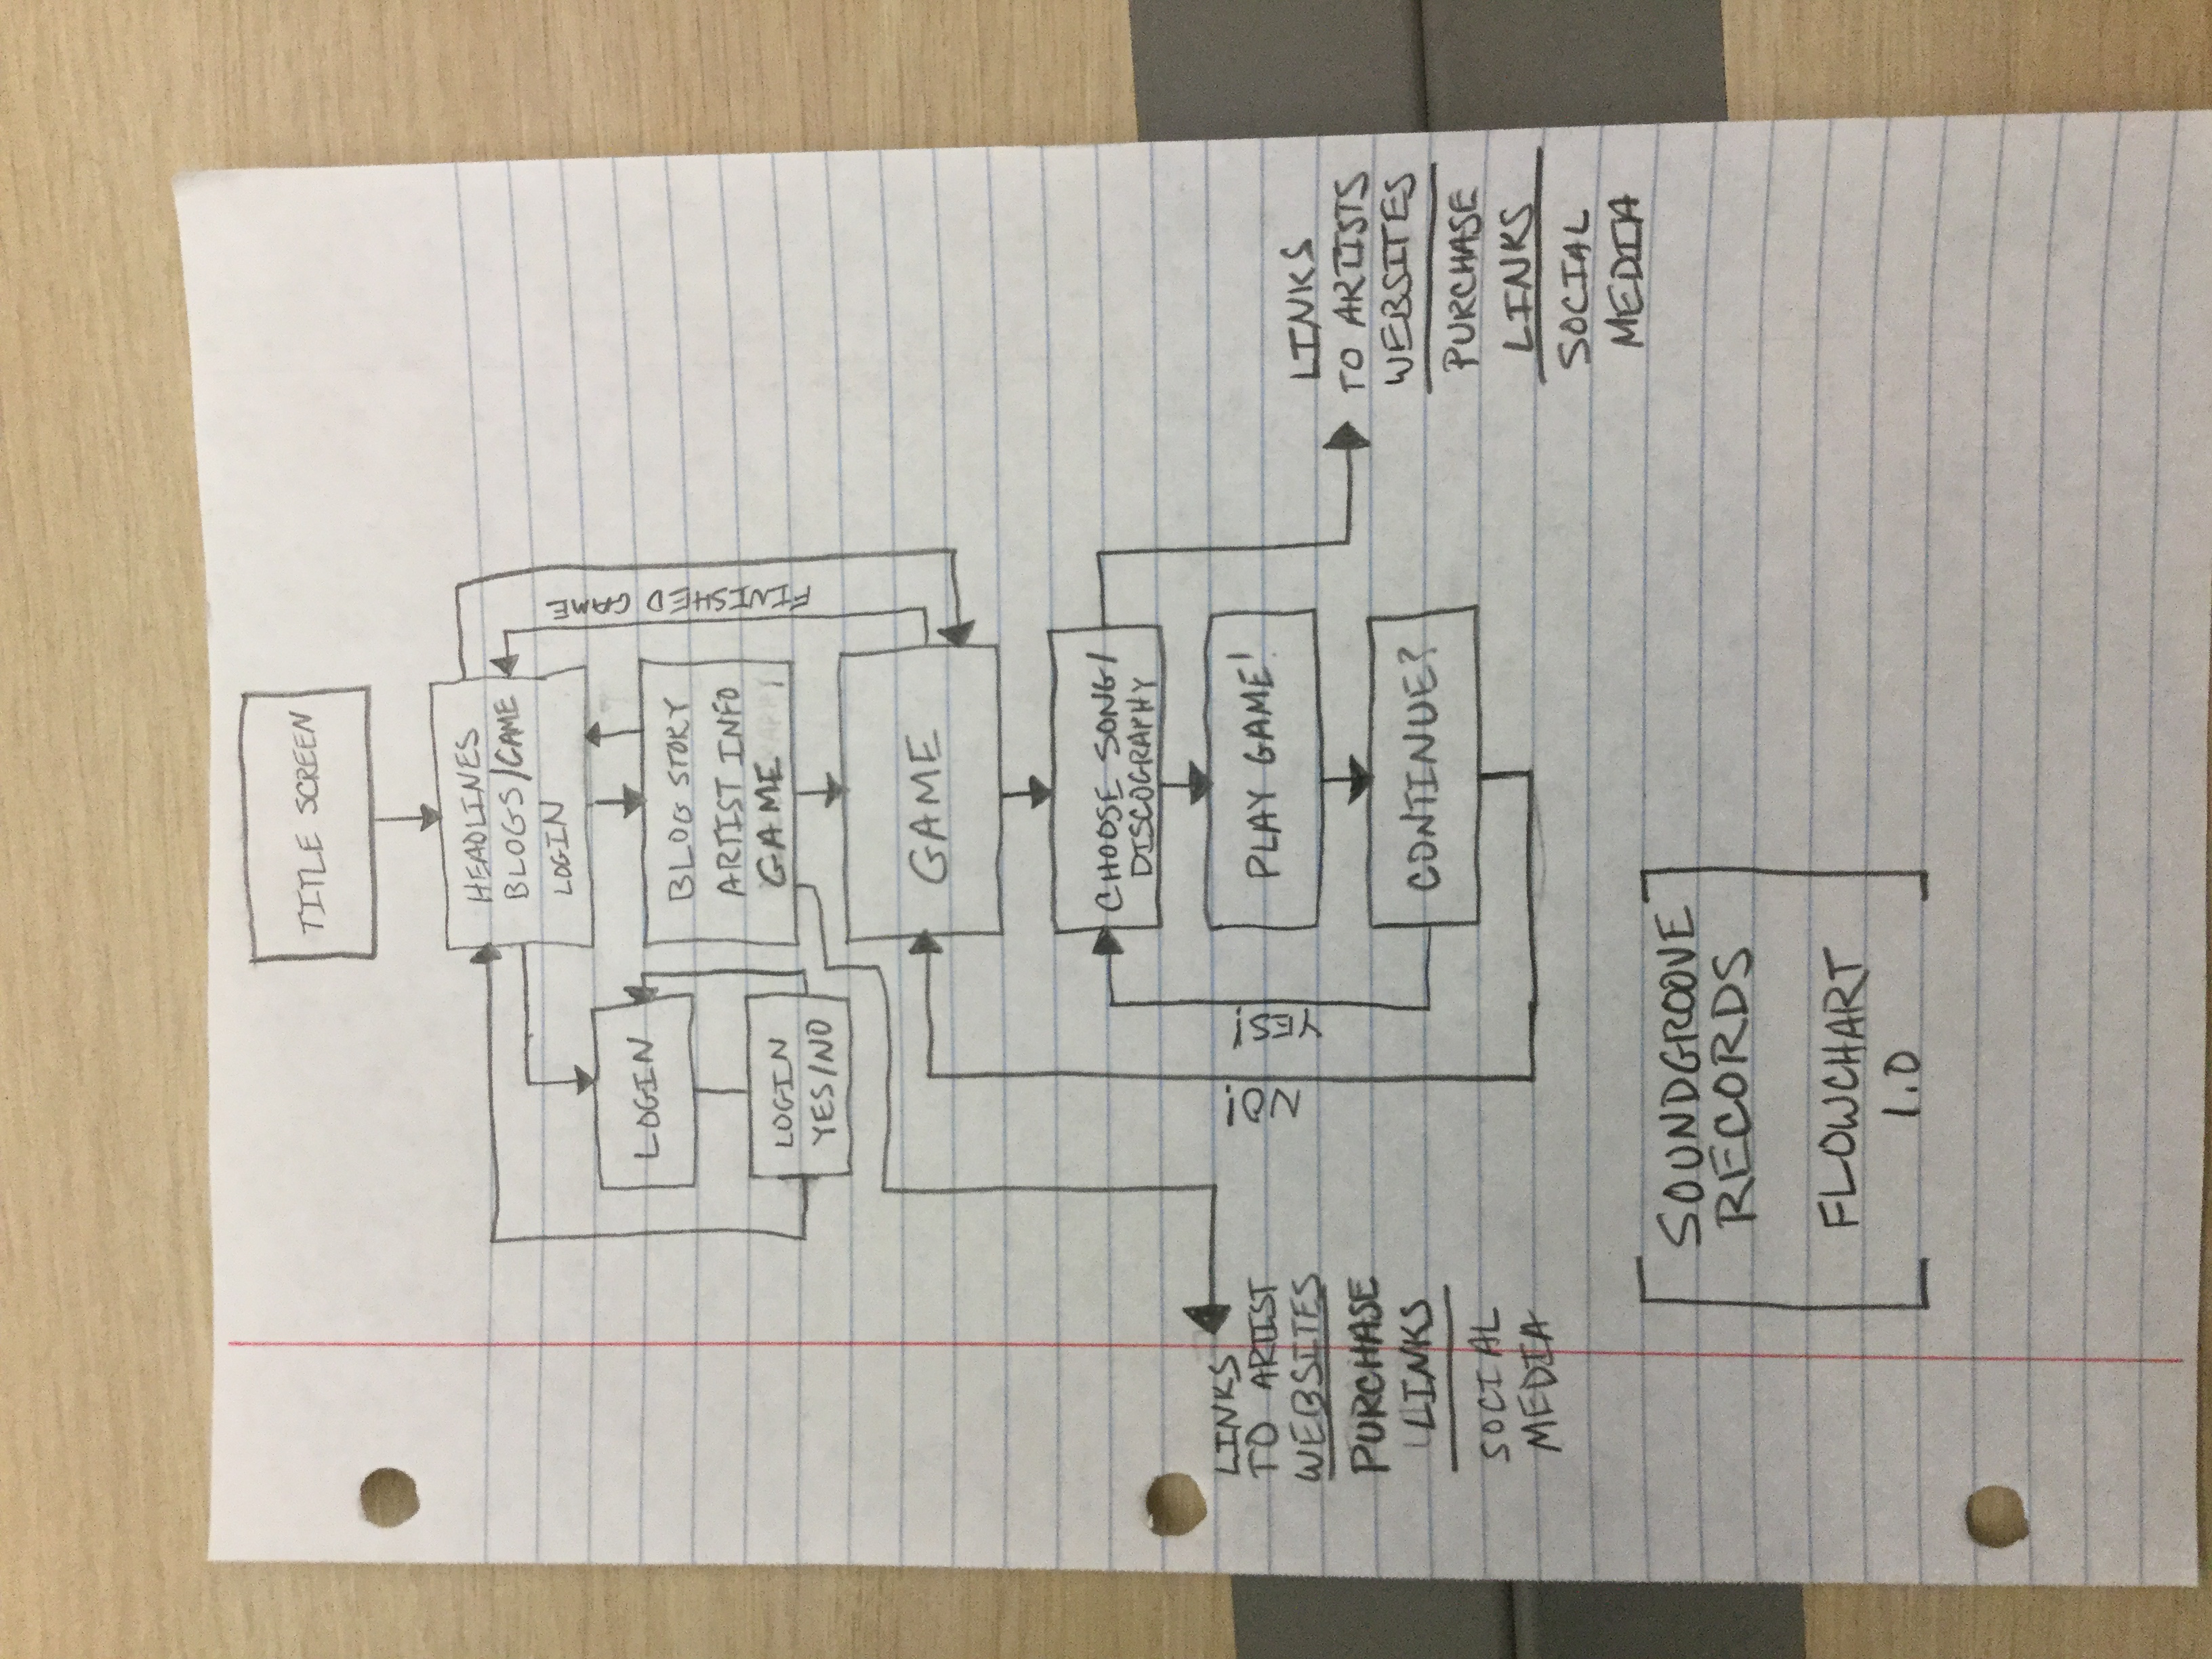 TITLE SCREEN
HEADLINES
BLOGS/GAME
LOGIN
LOGIN
LOGIN
YES/NO
BLOG STORY
ARTIST INFO
GAME
FINISHED GAME
GAME
CHOOSE SONG/
DISCOGRAPHY
PLAY GAME!
CONTINUE?
NO!
YES!
LINKS
TO ARTIST
WEBSITES
PURCHASE
LINKS
SOCIAL
MEDIA
LINKS
TO ARTISTS
WEBSITES
PURCHASE
LINKS
SOCIAL
MEDIA
SOUNDGROOVE
RECORDS
FLOWCHART
1.0